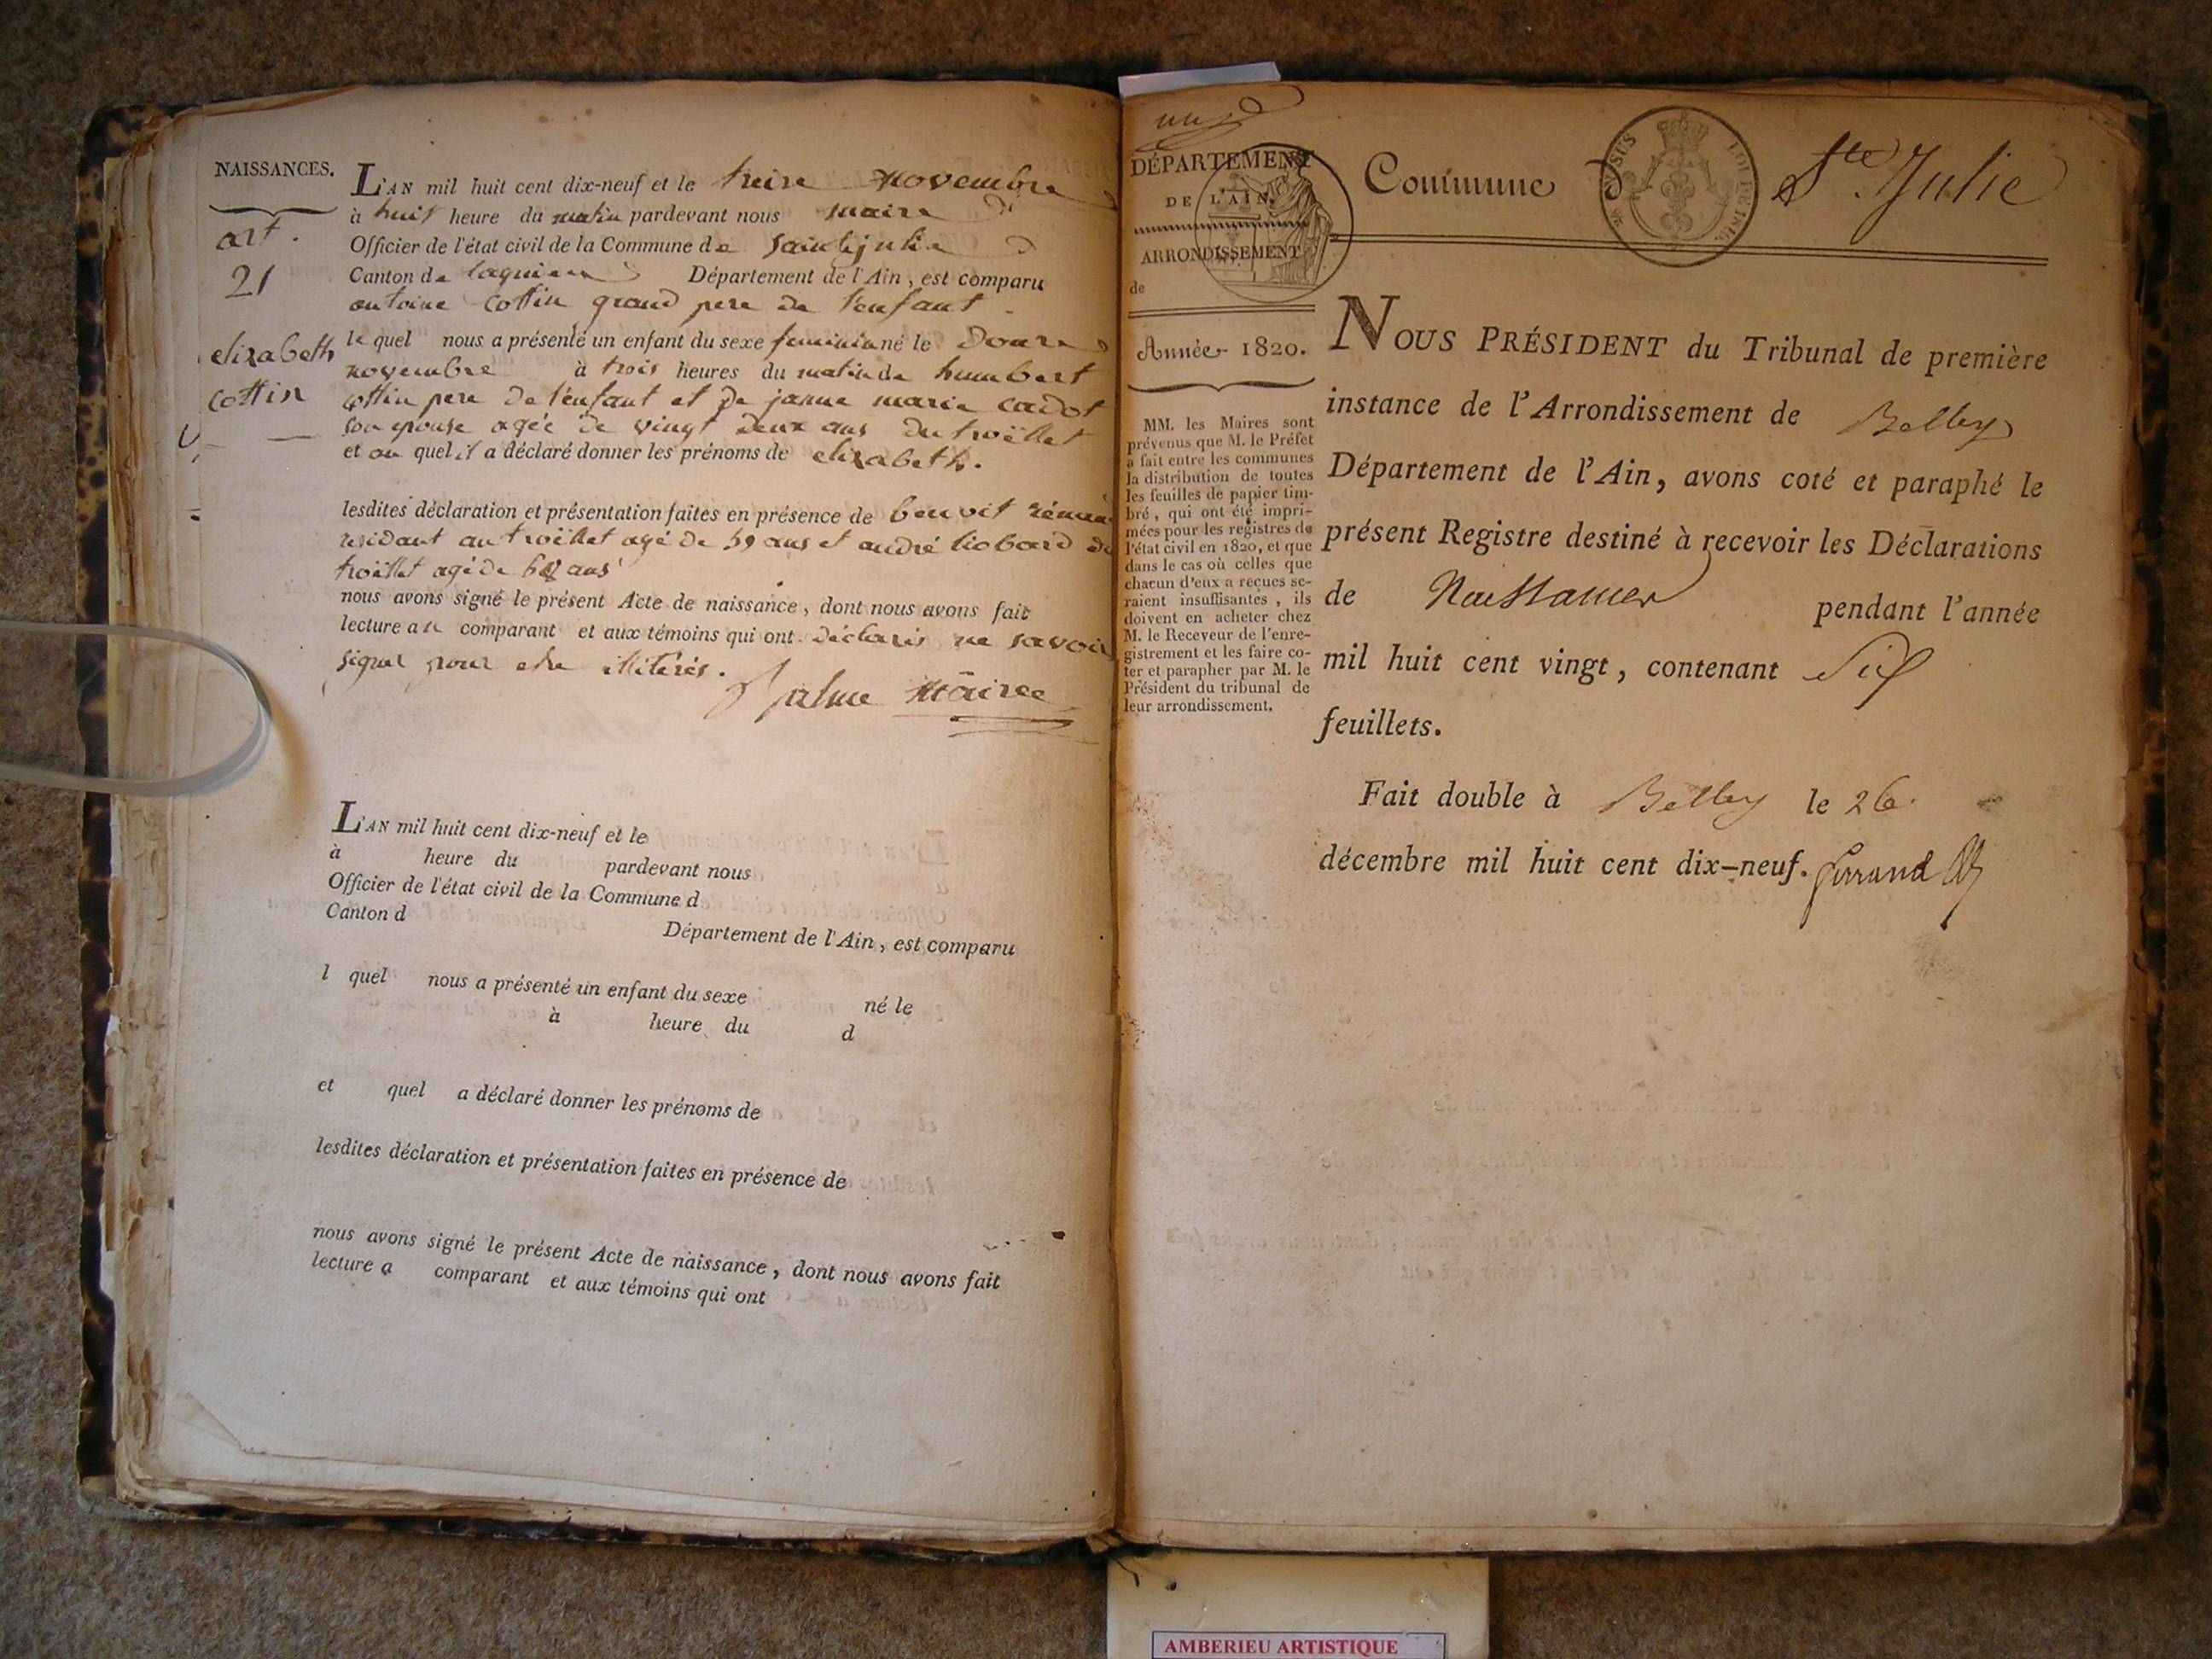 NAISSANCES.
art.
21
elizabeth
cottin
L'AN mil huit cent dix-neuf et le treize novembre
à huit heure du matin pardevant nous maire
Officier de l'état civil de la Commune de saintejulie
Canton de lagnieu Département de l'Ain, est comparu
antoine cottin grand pere de l'enfant
le quel nous a présenté un enfant du sexe feminin né le douze
novembre à trois heures du matin de humbert
cottin pere de l'enfant et de janne marie cadot
son epouse agée de vingt deux ans du troëllet
et au quel il a déclaré donner les prénoms de elizabeth.
lesdites déclaration et présentation faites en présence de benoit
residant au troëllet agé de 59 ans et andré liobard de
troëllet agé de ans
nous avons signé le présent Acte de naissance, dont nous avons fait
lecture au comparant et aux témoins qui ont déclarés ne savoir
signer pour etre illiterés.
Jalme Maire
L'AN mil huit cent dix-neuf et le
à heure du pardevant nous
Officier de l'état civil de la Commune d
Canton d
Département de l'Ain, est comparu
l quel nous a présenté un enfant du sexe né le
à heure du d
et quel a déclaré donner les prénoms de
lesdites déclaration et présentation faites en présence de
nous avons signé le présent Acte de naissance, dont nous avons fait
lecture a comparant et aux témoins qui ont
DÉPARTEMENT
DE L'AIN.
ARRONDISSEMENT
de
Année 1820.
MM. les Maires sont
prévenus que M. le Préfet
a fait entre les communes
la distribution de toutes
les feuilles de papier tim-
bré, qui ont été impri-
mées pour les registres de
l'état civil en 1820, et que
dans le cas où celles que
chacun d'eux a reçues se-
raient insuffisantes, ils
doivent en acheter chez
M. le Receveur de l'enre-
gistrement et les faire co-
ter et parapher par M. le
Président du tribunal de
leur arrondissement.
Commune d Ste. Julie
NOUS PRÉSIDENT du Tribunal de première
instance de l'Arrondissement de Belley
Département de l'Ain, avons coté et paraphé le
présent Registre destiné à recevoir les Déclarations
de Naissances pendant l'année
mil huit cent vingt, contenant Six
feuillets.
Fait double à Belley le 26
décembre mil huit cent dix-neuf.
AMBERIEU ARTISTIQUE